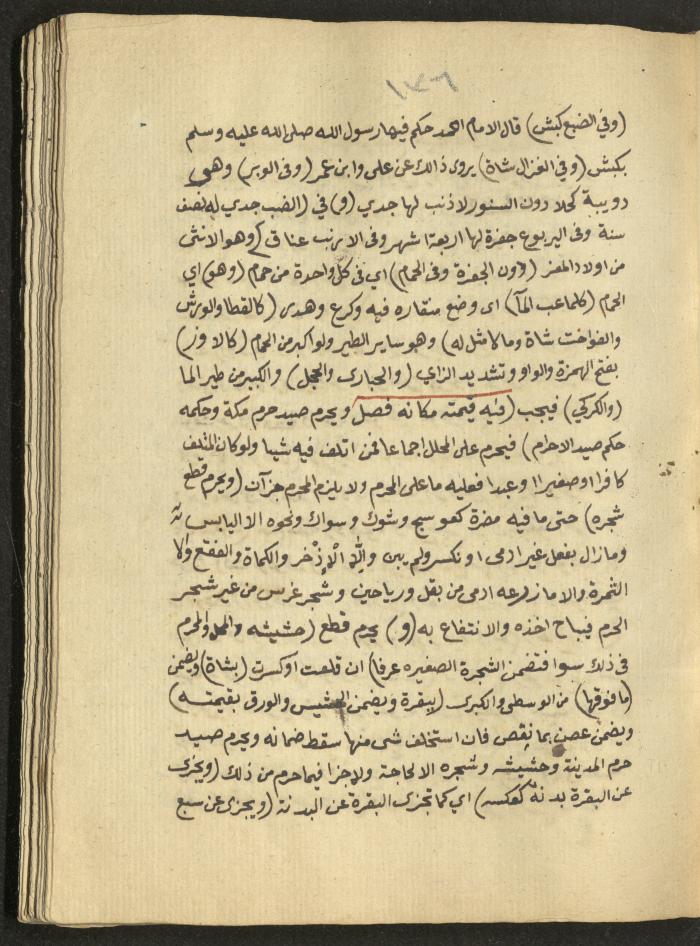 ١٧٦
(وفي الضبع كبش) قال الامام احمد حكم فيها رسول الله صلى الله عليه وسلم
بكبش (وفي الغزال شاة) يروى ذالك عن على وابن عمر (وفى الوبر) وهى
دويبة كحلا دون السنور لا ذنب لها جدي (و) في (الضب جدي له نصف
سنة وفى اليربوع جفرة لها اربعة اشهر وفى الارنب عناق) وهو الانثى
من اولاد المعز (دون الجفرة وفى الحمام) اي فى كل واحدة من حمام (وهو) اي
الحمام (كلما عب المآ) اى وضع منقاره فيه وكرع وهدر (كالقطا والورش
والفواخت شاة وما لا مثل له) وهو ساير الطير ولو اكبر من الحمام (كالاوز)
بفتح الهمزة والواو وتشديد الزاي (والحبارى والحجل) والكبير من طير الما
(والكركي) فيجب (فيه قيمته مكانه فصل ويحرم صيد حرم مكة وحكمه
حكم صيد الاحرام) فيحرم على المحلل اجماعا فمن اتلف فيه شيا ولو كان المتلف
كافرا او صغيرا او عبدا فعليه ما على المحرم ولا يلزم المحرم جزآن (ويحرم قطع
شجره) حتى ما فيه مضرة كعوسج وشوك وسواك ونحوه الا اليابس
وما زال بفعل غير ادمى او نكسر ولم يبن والا الإذخر والكماة والفقع والا
الثمرة والا ما زرعه ادمى من بقل ورياحين وشجر غرس من غير شجر
الحرم فيباح اخذه والانتفاع به (و) يحرم قطع (حشيشه والمحل والمحرم
فى ذلك سوا فتضمن الشجرة الصغيره عرفا) ان قلعت او كسرت (بشاة) ويضمن
(ما فوقها) من الوسطى والكبرى (ببقرة ويضمن الحشيش والورق بقيمته)
ويضمن غصن بما نقص فان استخلف شى منها سقط ضمانه ويحرم صيد
حرم المدينة وحشيشه وشجره الا لحاجة ولا جزا فيما حرم من ذلك (ويجزى
عن البقرة بدنة كعكسه) اي كما تجزى البقرة عن البدنة (ويجزى عن سبع